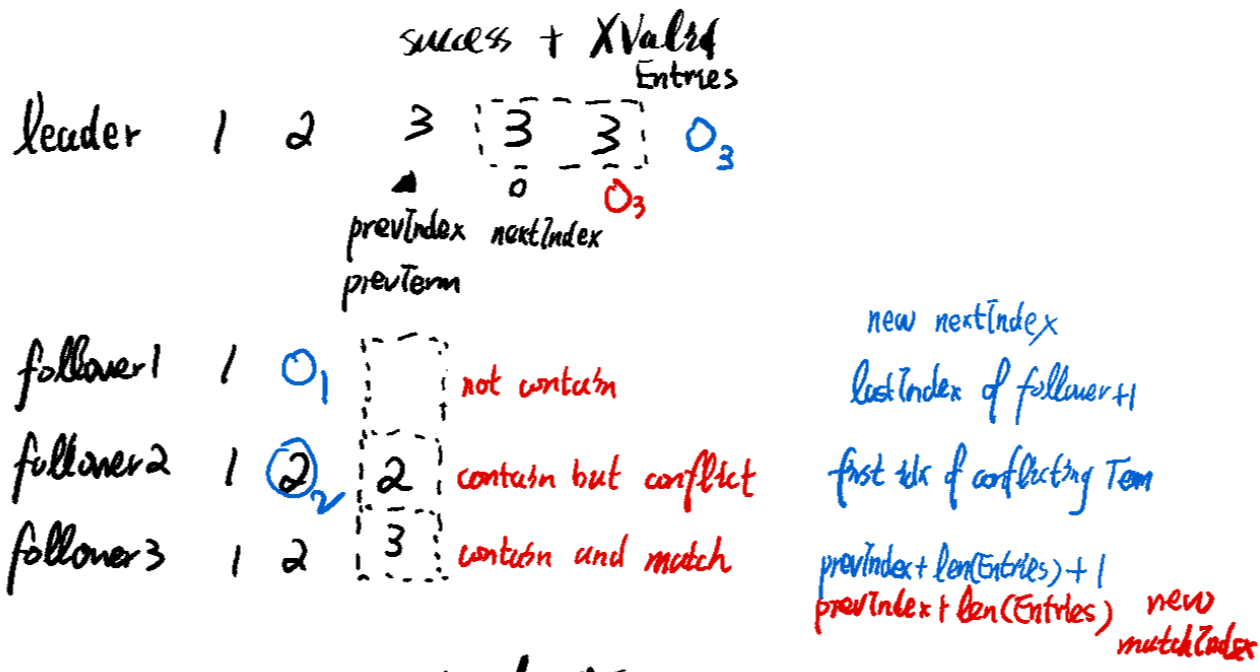 success + XValid
Entries
leader 1 2 3 3 3 O3
O O3
prevIndex nextIndex
prevTerm
new nextIndex
follower1 1 O1 not contain lastIndex of follower+1
follower2 1 2 2 2 contain but conflict first idx of conflicting Term
follower3 1 2 3 contain and match prevIndex + len(Entries) + 1
prevIndex + len(Entries) new
matchIndex